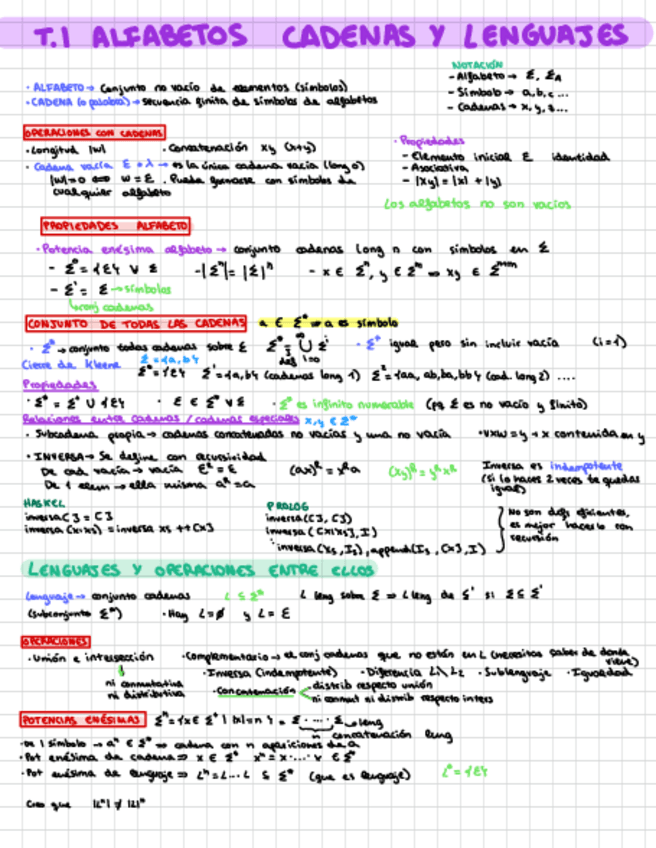 T.1 ALFABETOS CADENAS Y LENGUAJES
NOTACIÓN
· ALFABETO → Conjunto no vacío de elementos (símbolos)
- Alfabeto → Σ, Σ_A
· CADENA (o palabra) → secuencia finita de símbolos de alfabetos
- Símbolo → a, b, c...
- Cadenas → x, y, z...
OPERACIONES CON CADENAS
· Longitud |w| · Concatenación xy (x+y)
· Propiedades
· Cadena vacía ε o λ → es la única cadena vacía (long 0)
- Elemento inicial ε identidad
|w|=0 ⟺ w = ε. Puede formarse con símbolos de
- Asociativa
cualquier alfabeto
- |xy| = |x| + |y|
Los alfabetos no son vacíos
PROPIEDADES ALFABETO
· Potencia enésima alfabeto → conjunto cadenas long n con símbolos en Σ
- Σ⁰ = {ε} ∀ Σ - |Σⁿ| = |Σ|ⁿ - x ∈ Σⁿ, y ∈ Σᵐ ⇒ xy ∈ Σⁿ⁺ᵐ
- Σ¹ = Σ → símbolos
↳ conj cadenas
CONJUNTO DE TODAS LAS CADENAS a ∈ Σ* ⇒ a es símbolo
· Σ* → conjunto todas cadenas sobre Σ Σ* = ⋃ Σⁱ · Σ⁺ igual pero sin incluir vacía (i=1)
def i=0
Cierre de Kleene Σ = {a, b}
Σ⁰ = {ε} Σ¹ = {a, b} (cadenas long 1) Σ² = {aa, ab, ba, bb} (cad. long 2) ....
Propiedades
· Σ* = Σ⁺ ∪ {ε} · ε ∈ Σ* ∀ Σ · Σ* es infinito numerable (pq Σ es no vacío y finito)
Relaciones entre cadenas / cadenas especiales x, y ∈ Σ*
· Subcadena propia → cadenas concatenadas no vacías y una no vacía · vxw = y → x contenida en y
· INVERSA → Se define con recursividad
De cad vacía → vacía εᴿ = ε (ax)ᴿ = xᴿa (xy)ᴿ = yᴿxᴿ
De 1 elem → ella misma aᴿ = a
Inversa es indempotente
(si lo haces 2 veces te quedas
igual)
HASKEL
inversa [] = []
inversa (x:xs) = inversa xs ++ [x]
PROLOG
inversa([], [])
inversa([X|Xs], I)
:inversa(Xs, Is), append(Is, [X], I)
No son defs eficientes,
es mejor hacerlo con
recursión
LENGUAJES Y OPERACIONES ENTRE ELLOS
Lenguaje → conjunto cadenas L ⊆ Σ* L leng sobre Σ ⇒ L leng de Σ' si Σ ⊆ Σ'
(subconjunto Σ*) · Hay L = ∅ y L = ε
OPERACIONES
· Unión e intersección · Complementario → el conj cadenas que no están en L (necesitas saber de donde
viene)
· Inversa (indempotente) · Diferencia L₁\L₂ · Sublenguaje · Igualdad
ni conmutativa
ni distributiva
· Concatenación
distrib respecto unión
ni conmut ni distrib respecto inters
POTENCIAS ENÉSIMAS Σⁿ = {x ∈ Σ* | |x| = n} = Σ · ... · Σ → leng
n concatenación leng
· De 1 símbolo → aⁿ ∈ Σ* ⇒ cadena con n apariciones de a
· Pot enésima de cadena ⇒ x ∈ Σ* xⁿ = x · ... · x ∈ Σ*
· Pot enésima de lenguaje ⇒ Lⁿ = L...L ⊆ Σ* (que es lenguaje) L⁰ = {ε}
Creo que |Lⁿ| ≠ |L|ⁿ